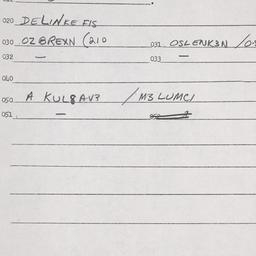 020 DELINKE FIS
030 OZBREXN (210 031 OSLENK3N /0
032 — 033 —
040
050 A KULBAV? / M3 LUMCI
051 —